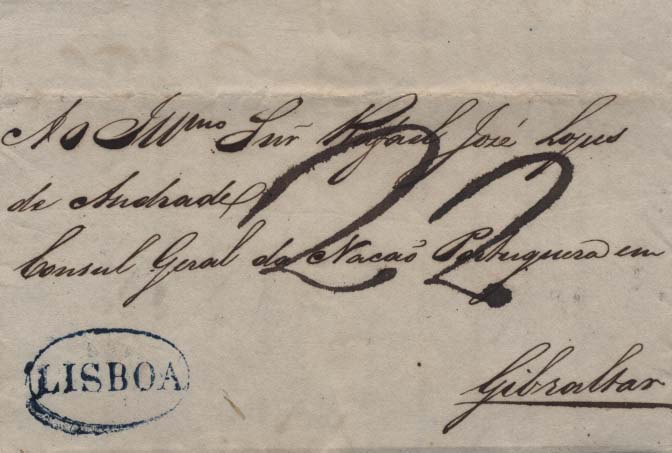 Ao Illmo Snr Rafael José Lopes
de Andrade
Consul Geral da Nacaõ Portugueza em
22
LISBOA
Gibraltar